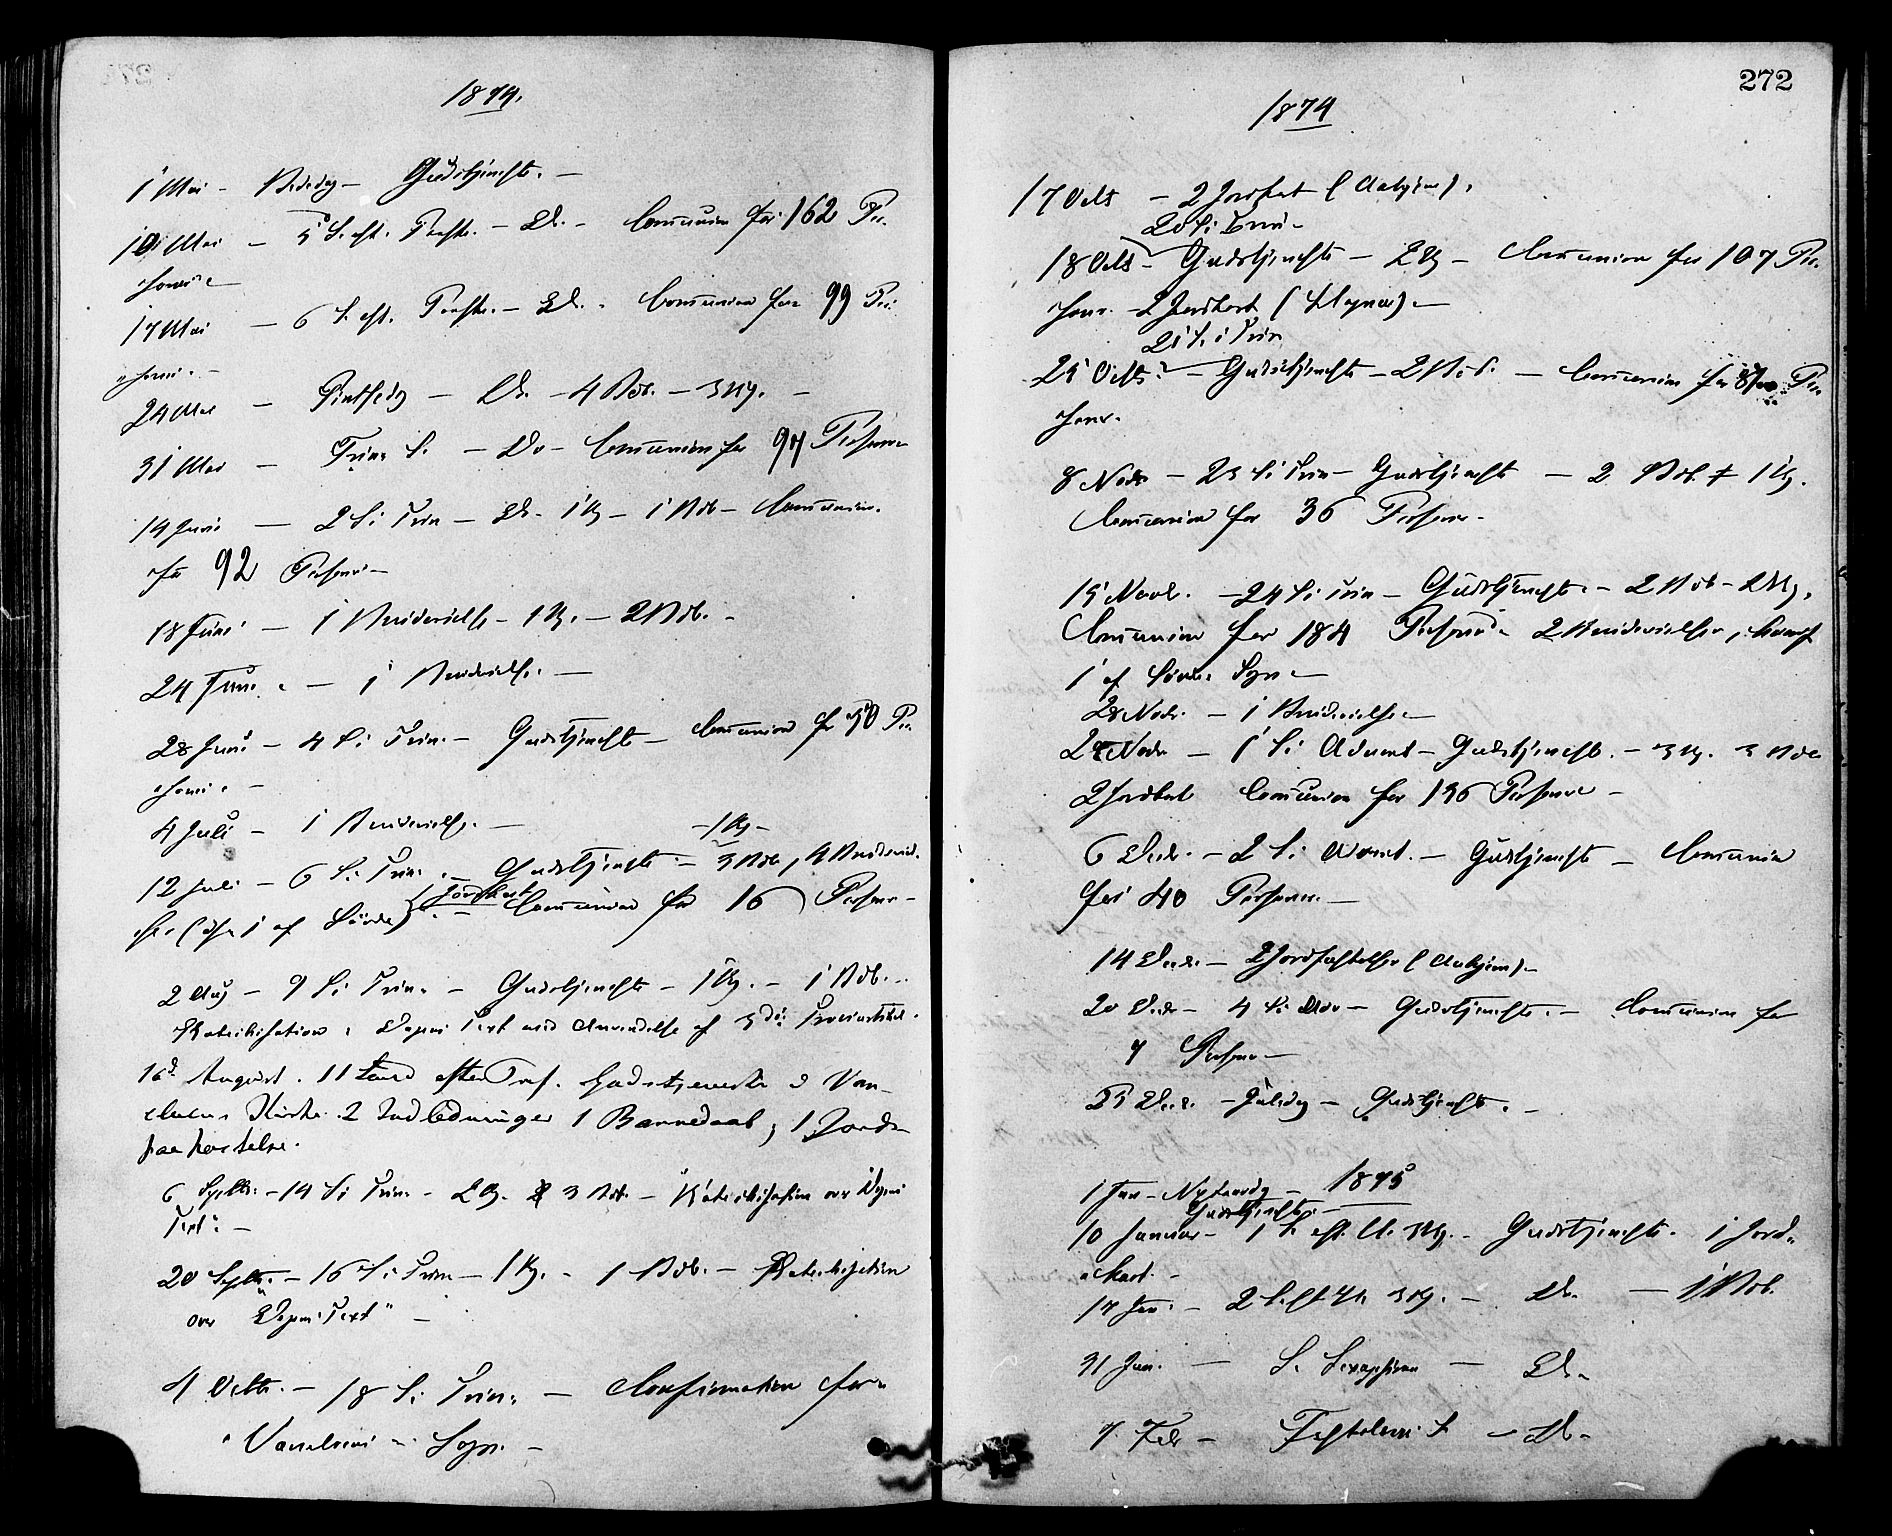 1874.
1 Mai - Bededag - Gudstjeneste. -
10 Mai - 5 S. eft. Paaske. - Do. - Communion for 162 Per-
soner -
17 Mai - 6 S. eft. Paaske. - Do. - Communion for 99 Per-
soner. -
24 Mai - Pintsedag - Do. - 4 Ndb. - 3 Kg. -
31 Mai - Trin. S. - Do - Communion for 94 Personer
14 Juni - 2 S. i Trin - Do - 1 Kg - 1 Ndb - Communion
for 92 Personer -
18 Juni - 1 Brudevielse - 1 Kg. - 2 Ndb. -
24 Juni - 1 Brudevielse. -
28 Juni - 4 S. i Trin. - Gudstjeneste - Communion for 50 Per-
soner -
4 Juli - 1 Brudevielse. -
- 1 Kg -
12 Juli - 6 S. i Trin. - Gudstjeneste - 3 Ndb, 4 Brudeviel-
ser ( 1 af Søndre) Jordkast - Communion for 16 Personer -
2 Aug - 9 S. i Trin. - Gudstjeneste - 1 Kg. - 1 Ndb. -
Katekisation. Dagens Text med Anvendelse af 3die
16d August. 11 Sønd efter Trif. Gudstjeneste i Van-
Kirke. 2 Indledninger 1 Barnedaab, 1 Jords-
paakastelse.
6 Septbr. - 14 S. i Trin. - 2 Kg. 3 Ndb. - Katechisation over Dagens
Text. -
20 Septbr. - 16 S. i Trin - 1 Kg. - 1 Ndb. - Katechisation
over Dagens Text -
4 Octbr. - 18 S. i Trin. - Confirmation for
Sogn. -
272
1874
17 Octb - 2 Jordkast
20 S. i Trin -
18 Octb - Gudstjeneste - 2 Kg - Communion for 107 Per-
soner. - 2 Jordkast -
21 S. i Trin
25 Octb. - Gudstjeneste - 2 Ndb. - Communion for Per-
soner.
8 Novb - 23 S. i Trin - Gudstjeneste - 2 Ndb. + 1 Kg.
Communion for 36 Personer -
15 Novb. - 24 S. i Trin - Gudstjeneste. - 2 Ndb - 2 Kg.
Communion for 184 Personer 2 Brudevielser, hvoraf
1 af Søndre Sogn -
28 Novb. - 1 Brudevielse -
29 Novb - 1 S. i Advent - Gudstjeneste. - 3 Kg. 3 Ndb
2 Jordkast Communion for 136 Personer -
6 Decb. - 2 S. i Advent. - Gudstjeneste - Communion
for 40 Personer. -
14 Decb. - 2 Jordfæstelser
20 Decb - 4 S. i Adv - Gudstjeneste. - Communion for
7 Personer -
25 Decb. - Juledag - Gudstjeneste. -
1875
1 Jan - Nytaarsdag -
Gudstjeneste. -
10 Januar - 1 S. eft. H. 3 Kg. - Gudstjeneste. 1 Jord-
kast. -
17 Jan. - 2 S. eft H. 3 Kg. - Do. - 1 Ndb.
31 Jan. - S. Sexagesima - Do. -
7 Febr - Fastelavns S. - Do -